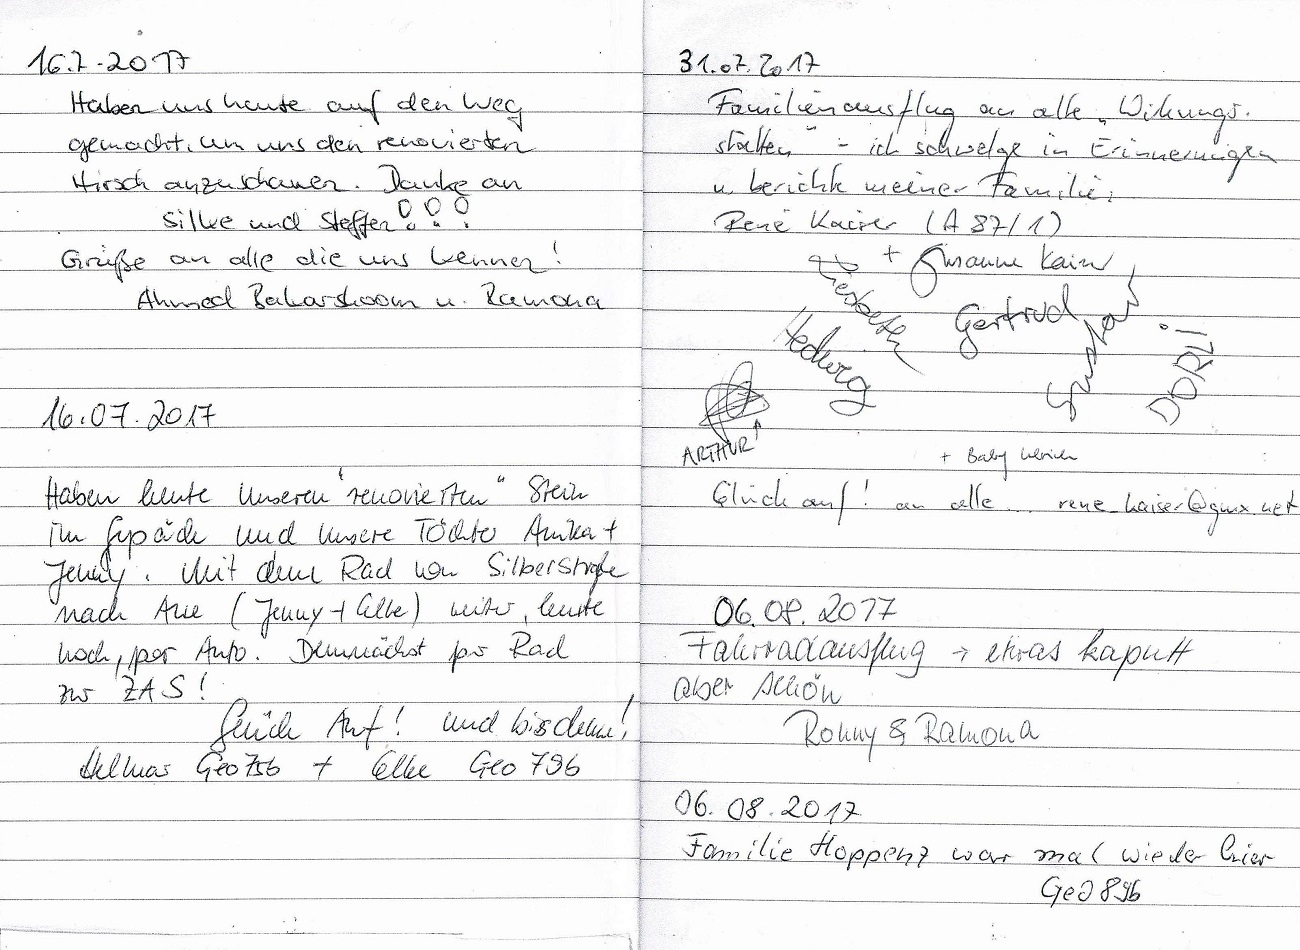 16.7.2017
Haben uns heute auf den Weg
gemacht, um uns den renovierten
Hirsch anzuschauen. Danke an
Silke und Steffen!!!
Grüße an alle die uns kennen!
Ahmed u. Ramona
16.07.2017
Haben heute unseren "renovierten" Stein
im Gepäck und unsere Töchter Anika +
Jenny. Mit dem Rad von Silberstraße
nach Aue (Jenny + Elke) weiter, heute
noch, per Auto. Demnächst per Rad
zur ZAS!
Glück Auf! und bis dann!
Geo 756 + Elke Geo 796
31.07.2017
Familienausflug an alte "Wirkungs-
stätten" - ich schwelge in Erinnerungen
u. berichte meiner Familie.
René Kaiser (A 87/1)
+ Susanne Kaiser
Liesbeth
Hedwig
Gertrud
Gustav
DORLI
ARTHUR
+ Baby Ulrich
Glück auf! an alle ... rene_kaiser@gmx.net
06.08.2017
Fahrradausflug → etwas kaputt
aber schön
Ronny & Ramona
06.08.2017
Familie Hoppenz war mal wieder hier
Geo 896